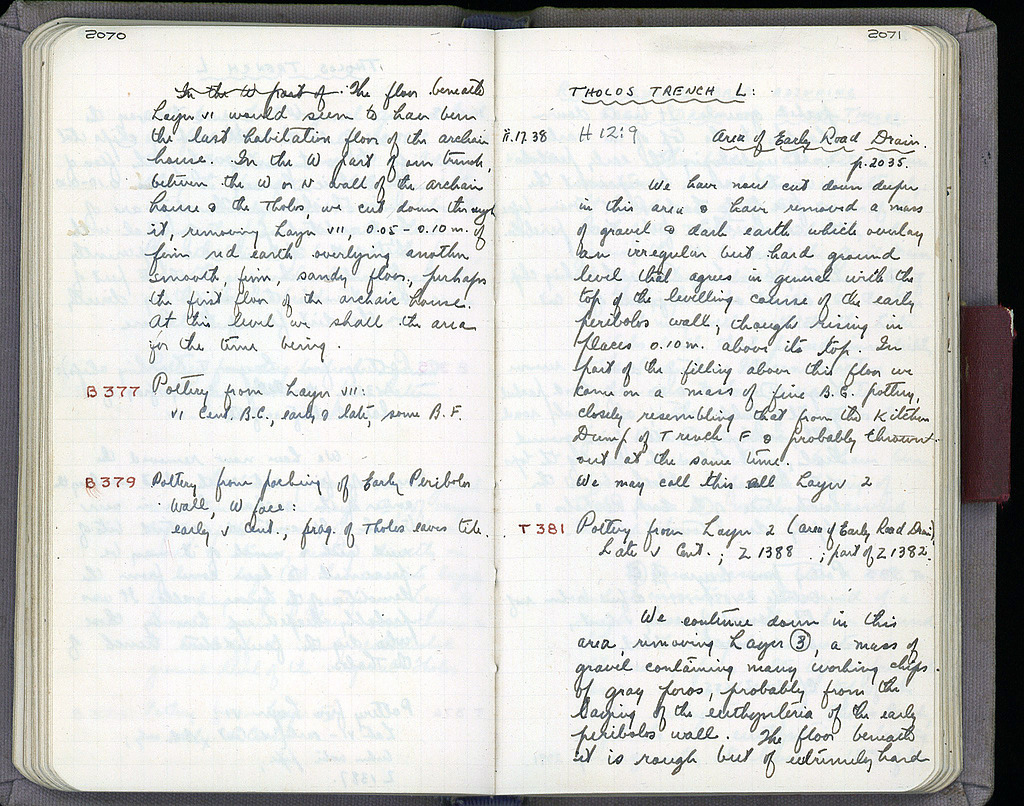 2070
In the W part of The floor beneath
Layer VI would seem to have been
the last habitation floor of the archaic
house. In the W part of our trench,
between the W or N wall of the archaic
house & the Tholos, we cut down through
it, removing Layer VII, 0.05 - 0.10 m. of
firm red earth overlying another
smooth, firm, sandy floor, perhaps
the first floor of the archaic house.
At this level we shall the area
for the time being.
B 377 Pottery from Layer VII:
VI Cent. B.C., early & late, some B.F.
B 379 Pottery from packing of Early Peribolos
Wall, W face:
early V Cent., frag. of Tholos eaves tile.
2071
THOLOS TRENCH L:
II.17.38 H 12:9 Area of Early Road Drain.
p. 2035.
We have now cut down deeper
in this area & have removed a mass
of gravel & dark earth which overlay
an irregular but hard ground
level that agrees in general with the
top of the levelling course of the early
peribolos wall, though rising in
places 0.10 m. above its top. In
part of the filling above this floor we
came on a mass of fine B.G. pottery,
closely resembling that from the Kitchen
Dump of Trench F & probably thrown
out at the same time.
We may call this all Layer 2
T 381 Pottery from Layer 2 (area of Early Road Drain)
Late V Cent.; Z 1388 .; part of Z 1382.
We continue down in this
area, removing Layer 3, a mass of
gravel containing many working chips
of gray poros, probably from the
laying of the euthynteria of the early
peribolos wall. The floor beneath
it is rough but of extremely hard